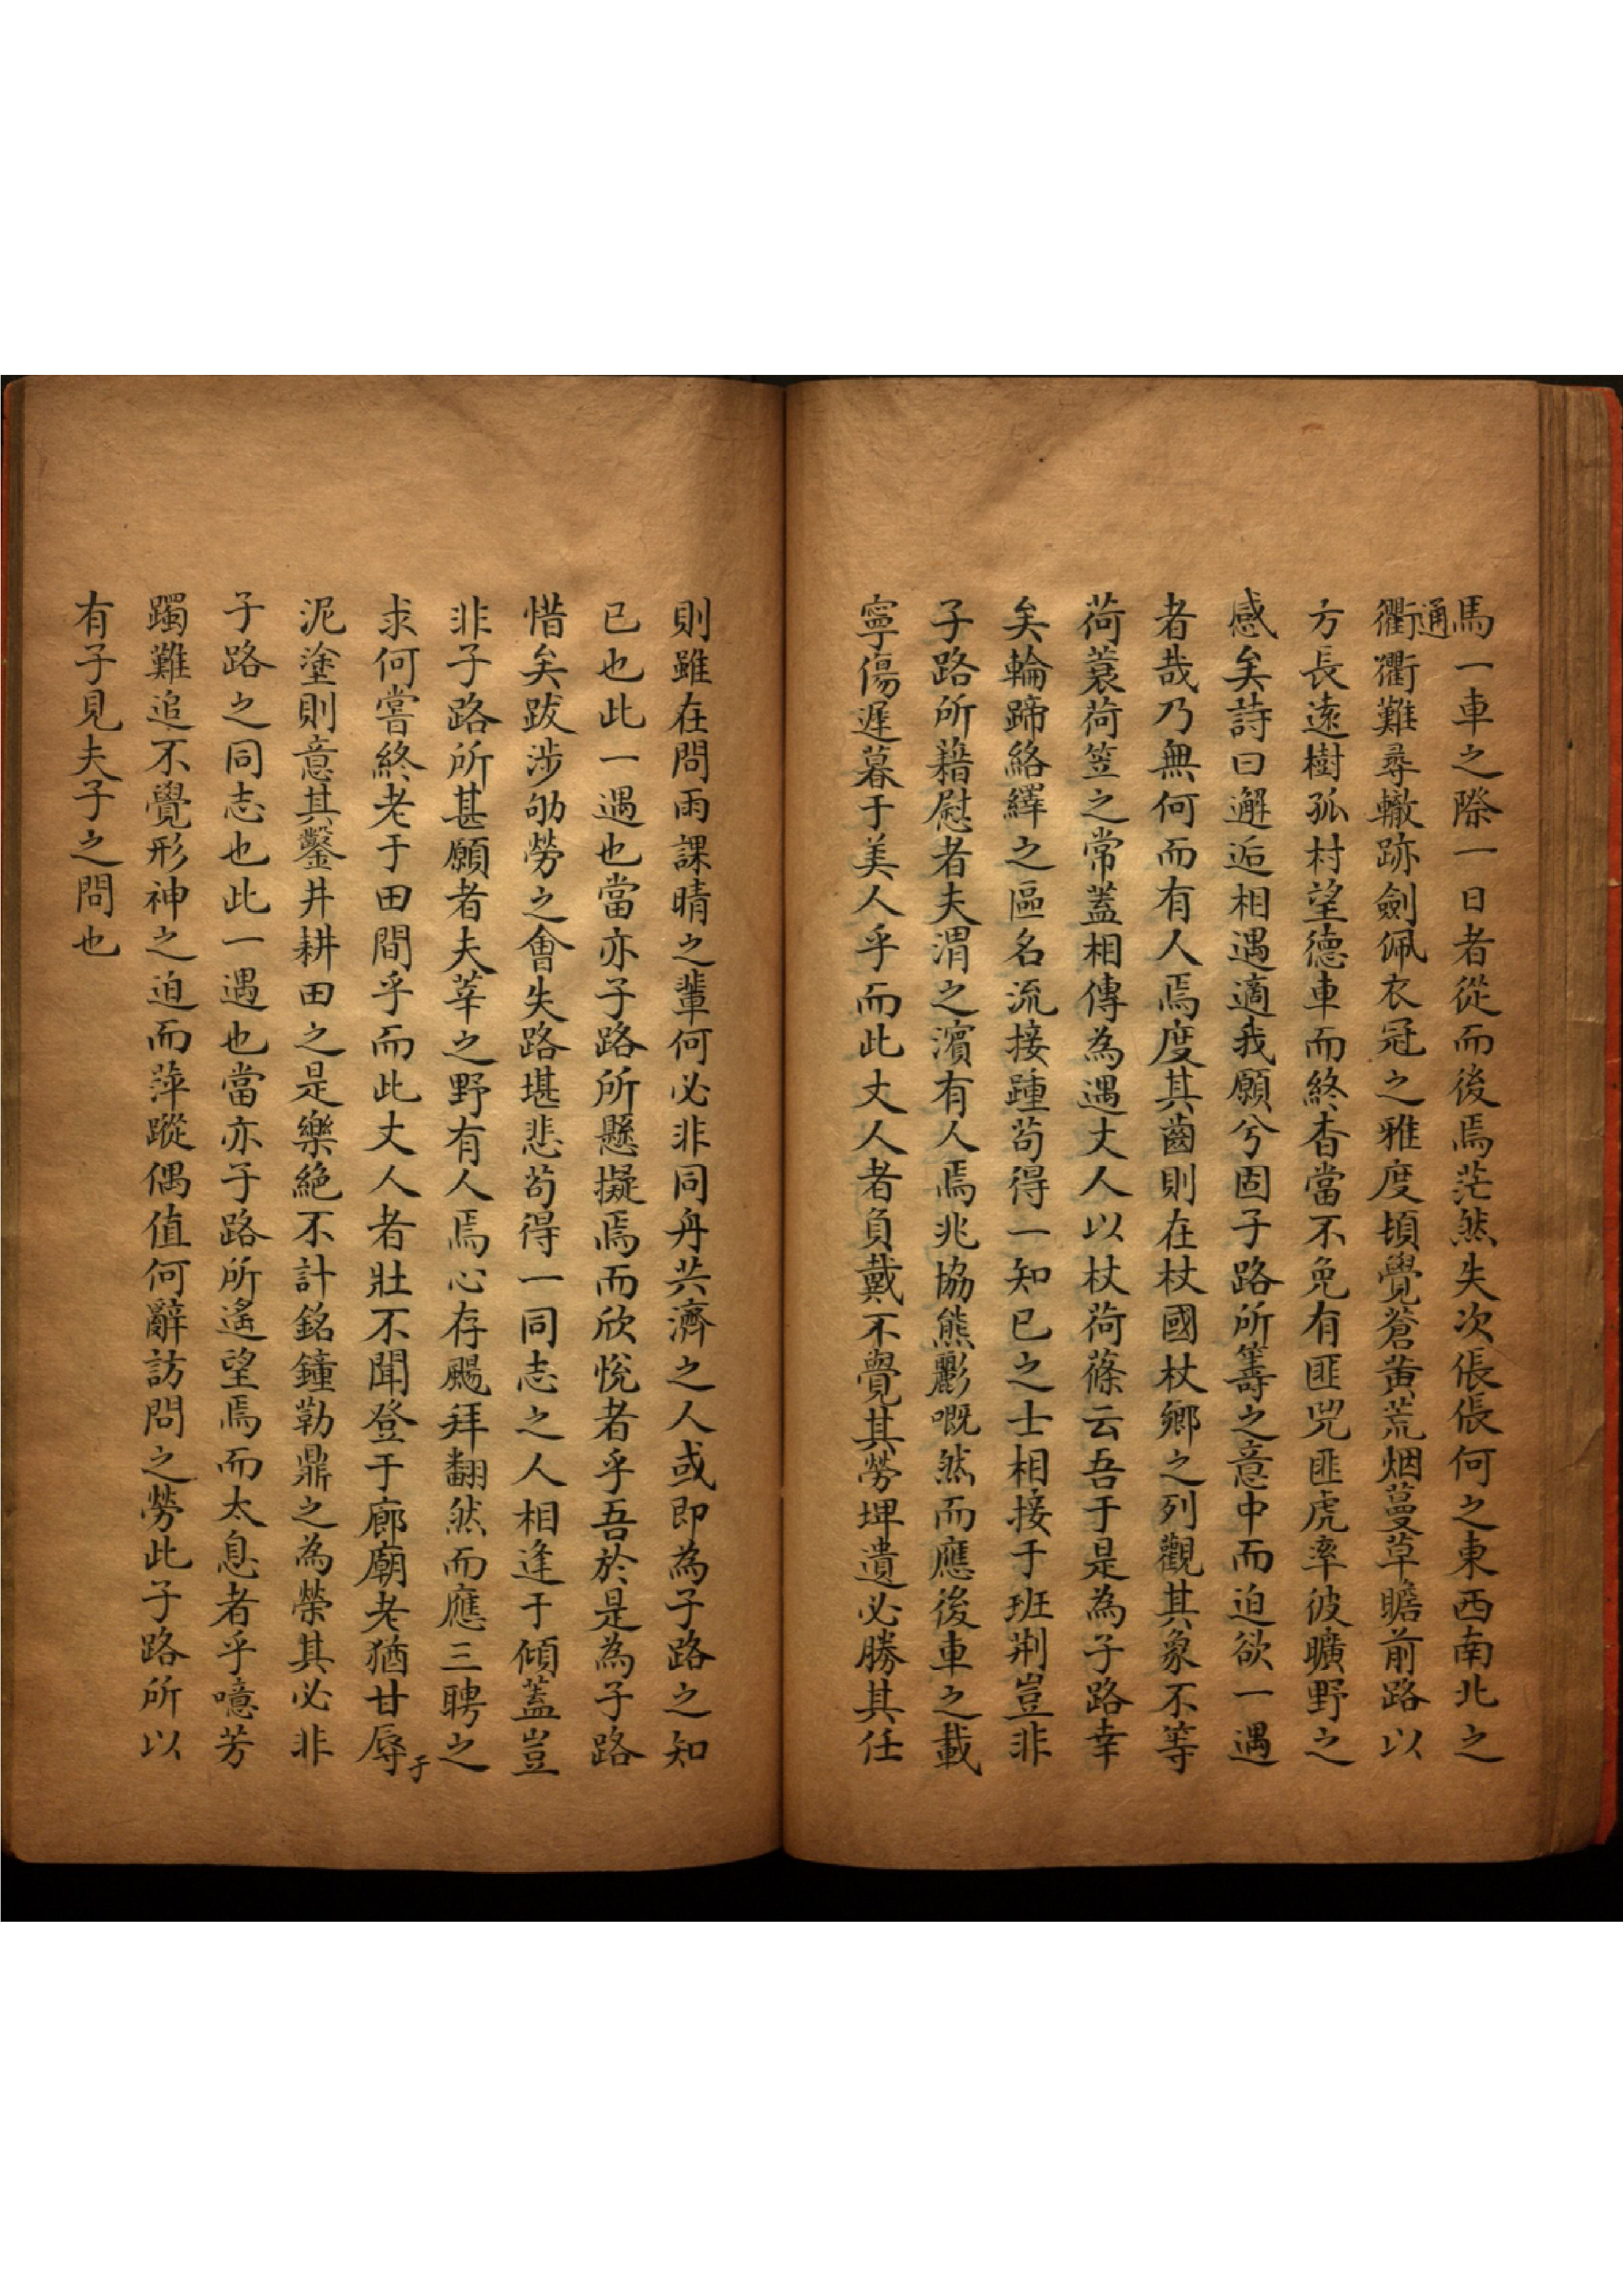 馬一車之際一日者從而後焉茫然失次倀倀何之東西南北之
通
衢衢難尋轍跡劍佩衣冠之雅度頃覺蒼黃荒烟蔓草瞻前路以
方長遠樹孤村望德車而終杳當不免有匪兕匪虎率彼曠野之
感矣詩曰邂逅相遇適我願兮固子路所籌之意中而迫欲一遇
者哉乃無何而有人焉度其齒則在杖國杖鄉之列觀其象不等
荷蓑荷笠之常蓋相傳為遇丈人以杖荷蓧云吾于是為子路幸
矣輪蹄絡繹之區名流接踵苟得一知已之士相接于班荆豈非
子路所藉慰者夫渭之濱有人焉兆協熊彲嘅然而應後車之載
寧傷遲暮于美人乎而此丈人者負戴不覺其勞埤遺必勝其任
則雖在問雨課晴之輩何必非同舟共濟之人或即為子路之知
已也此一遇也當亦子路所懸擬焉而欣悅者乎吾於是為子路
惜矣跋涉劬勞之會失路堪悲苟得一同志之人相逢于傾蓋豈
非子路所甚願者夫莘之野有人焉心存颺拜翻然而應三聘之
求何嘗終老于田間乎而此丈人者壯不聞登于廊廟老猶甘辱于
泥塗則意其鑿井耕田之是樂絕不計銘鐘勒鼎之為榮其必非
子路之同志也此一遇也當亦子路所遙望焉而太息者乎噫芳
躅難追不覺形神之迫而萍蹤偶值何辭訪問之勞此子路所以
有子見夫子之問也